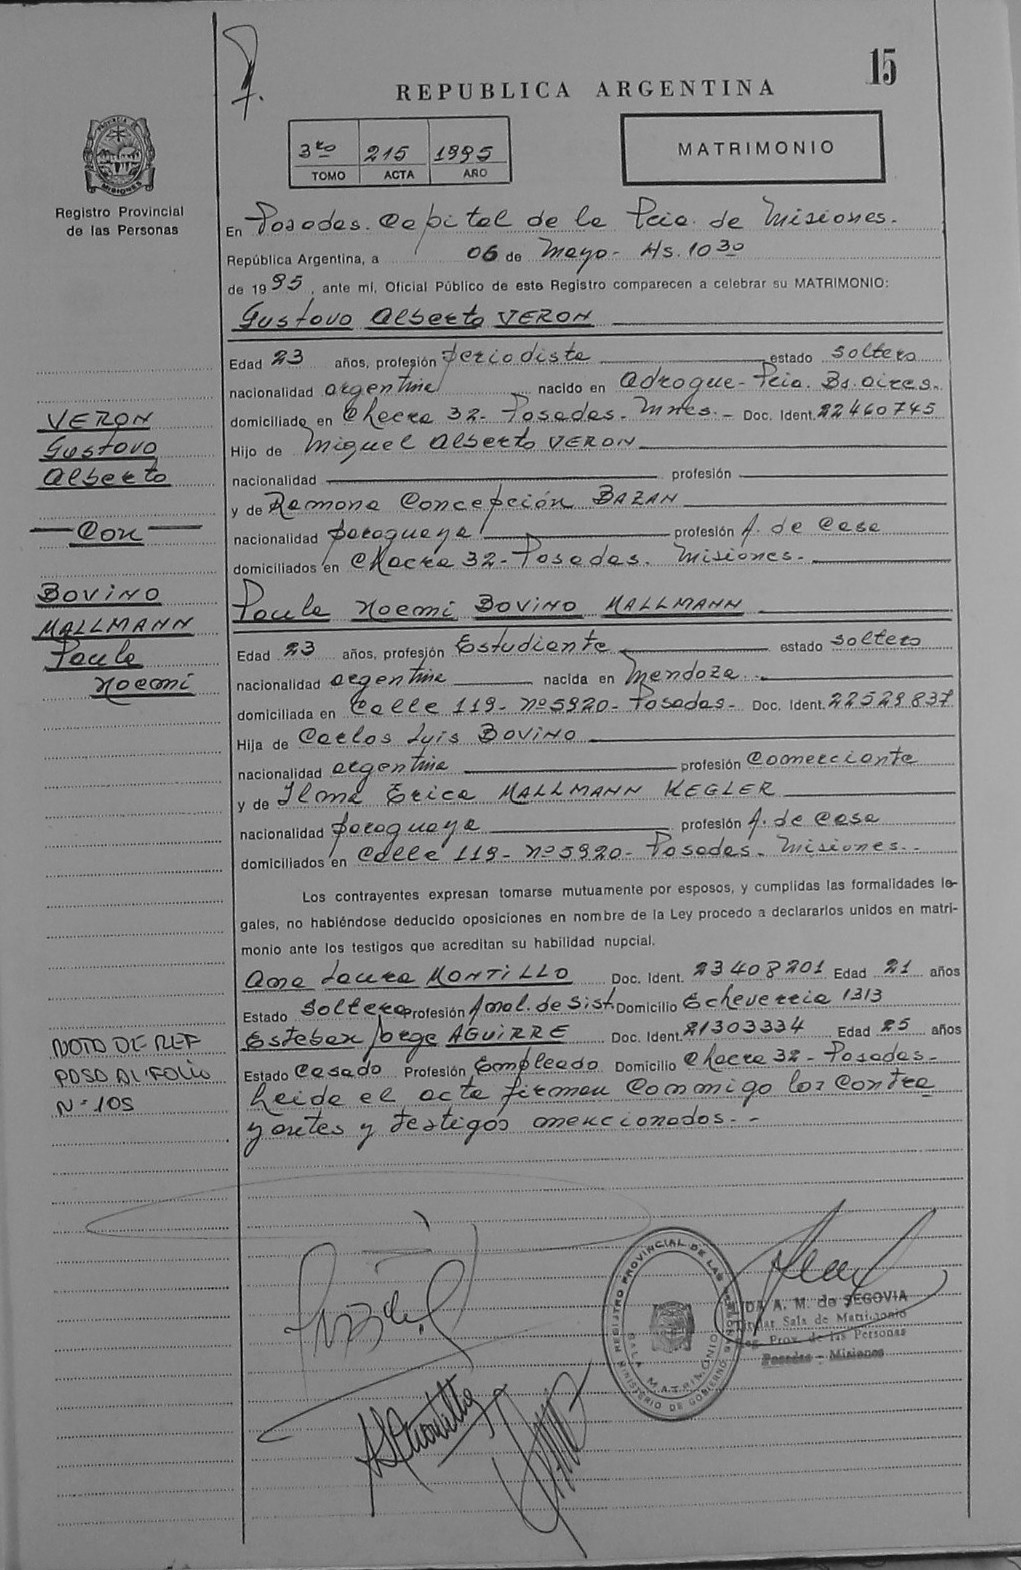 15
REPUBLICA ARGENTINA
3ro 215 1995
TOMO ACTA AÑO
MATRIMONIO
PROVINCIA DE
MISIONES
Registro Provincial
de las Personas
En Posadas. Capital de la Pcia. de Misiones.
República Argentina, a 06 de Mayo - Hs. 10 30
de 1995, ante mí, Oficial Público de este Registro comparecen a celebrar su MATRIMONIO:
Gustavo Alberto VERON
Edad 23 años, profesión periodista estado soltero
nacionalidad argentina nacido en Adrogue - Pcia. Bs. aires.
domiciliado en Chacra 32 - Posadas - Mnes. - Doc. Ident. 22460745
Hijo de Miguel Alberto VERON
nacionalidad profesión
y de Ramona Concepción BAZAN
nacionalidad paraguaya profesión A. de Casa
domiciliados en Chacra 32 - Posadas. Misiones.
Paula Noemi BOVINO MALLMANN
Edad 23 años, profesión Estudiante estado soltera
nacionalidad argentina nacida en Mendoza
domiciliada en Calle 119 - nº 5920 - Posadas - Doc. Ident. 22529837
Hija de Carlos Luis BOVINO
nacionalidad argentina profesión Comerciante
y de Ilma Erica MALLMANN KEGLER
nacionalidad paraguaya profesión A. de Casa
domiciliados en Calle 119 - nº 5920 - Posadas - Misiones.
Los contrayentes expresan tomarse mutuamente por esposos, y cumplidas las formalidades le-
gales, no habiéndose deducido oposiciones en nombre de la Ley procedo a declararlos unidos en matri-
monio ante los testigos que acreditan su habilidad nupcial.
Ana Laura MONTILLO Doc. Ident. 23408201 Edad 21 años
Estado Soltera Profesión Anal. de Sist. Domicilio Echeverria 1313
Esteban Jorge AGUIRRE Doc. Ident. 21303334 Edad 25 años
Estado Casado Profesión Empleado Domicilio Chacra 32 - Posadas -
Leida el acta firman conmigo los contra
yentes y testigos mencionados. -
VERON
Gustavo
Alberto
Con
BOVINO
MALLMANN
Paula
Noemi
NOTO DE REF
PASA AL FOLIO
Nº 105
REGISTRO PROVINCIAL DE LAS PERSONAS
SALA MATRIMONIO
MINISTERIO DE GOBIERNO
A. M. de SEGOVIA
Titular Sala de Matrimonio
Reg. Prov. de las Personas
Posadas - Misiones